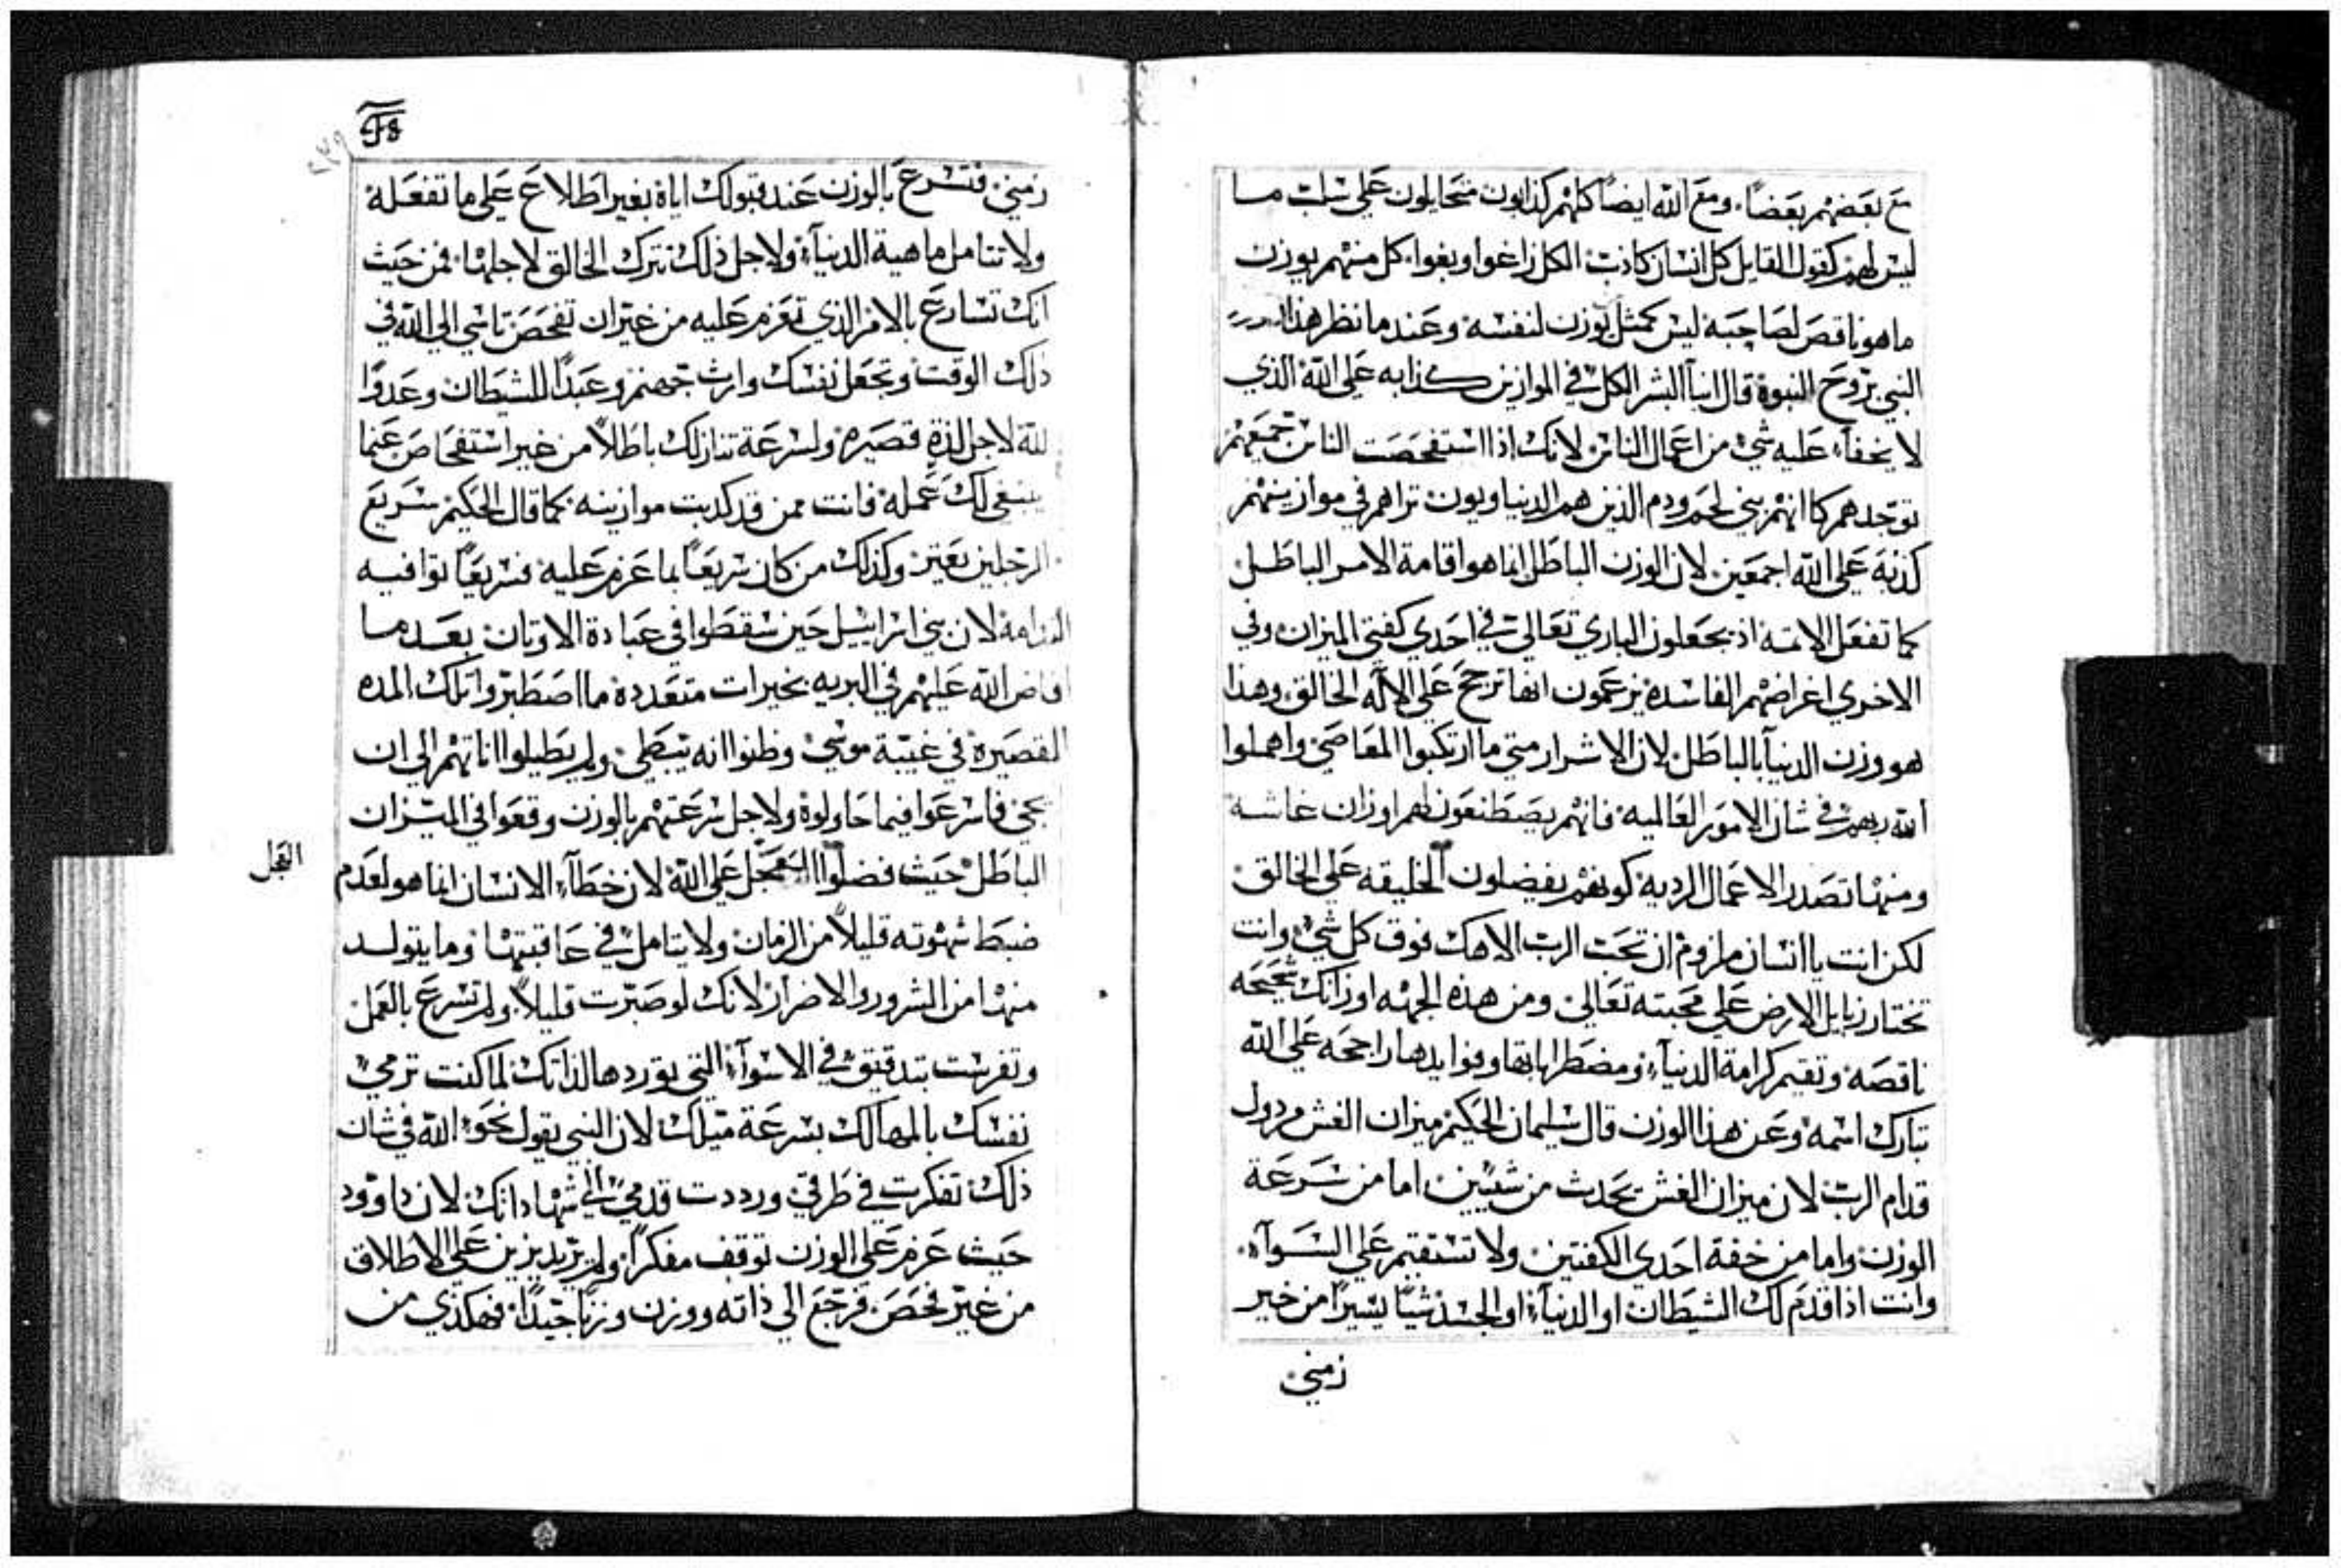 مع بعضهم بعضًا. ومع الله ايضًا كلهم كذابون متحايلون علي سلب ما
ليس لهم كقول القايل كل انسان كاذب الكل زاغوا وبغوا. كل منهم يوزن
ما هو ناقص لصاحبه ليس كمثل يوزن لنفسه وعند ما نظر هذا
النبي بروح النبوة قال ابنآ البشر الكل في الموازين كذابه علي الله الذي
لا يخفاء عليه شي من اعمال الناس لانك اذا استفحصت الناس جميعهم
توجدهم كانهم بني لحم ودم الذين هم الدنياويون تراهم في موازينهم
كذبة علي الله اجمعين لان الوزن الباطل انما هو اقامة الامر الباطل
كما تفعل الاثمه اذ يجعلون الباري تعالي في احدي كفتي الميزان وفي
الاخري اغراضهم الفاسده يزعمون انها ترجح علي الآله الخالق وهذا
هو وزن الدنيآ بالباطل لان الاشرار متي ما ارتكبوا المعاصي واهملوا
الله ربهم في شان الامور العالميه فانهم يصطنعون لهم اوزان غاشه
ومنها تصدر الاعمال الرديه كونهم يفضلون الخليقه علي الخالق
لكن انت يا انسان ملزوم ان تحت الرب الاهك فوق كل شي وانت
تختار زبايل الارض علي محبته تعالي ومن هذه الجهه اوزانك شحيحه
ناقصه وتقيم كرامة الدنيآء ومضطراباتها وفوايدها راجحه علي الله
تبارك اسمه وعن هذا الوزن قال سليمان الحكيم ميزان الغش مردول
قدام الرب لان ميزان الغش يحدث من شيين اما من سرعة
الوزن واما من خفة احدي الكفتين ولا تستقيم علي السوآء.
وانت اذا قدم لك الشيطان او الدنيآء او الجسد شيًا يسيرًا من خير
زمني
زمني فتسرع بالوزن عند قبولك اياه بغير اطلاع علي ما تفعله
ولا تتامل ماهية الدنيآء ولاجل ذلك تترك الخالق لاجلها فمن حيث
انك تسارع بالامر الذي تعزم عليه من غير ان تفحص تاسي الي الله في
ذلك الوقت وتجعل نفسك وارث جهنم وعبدًا للشيطان وعدوًا
لله لاجل لذة قصيره ولسرعة تنازلك باطلاً من غير استفحاص عنما
ينبغي لك عمله فانت ممن قد كدبت موازينه كما قال الحكيم سريع
الرجلين يعتر وكذلك من كان سريعًا بما عزم عليه فسريعًا توافيه
الندامة لان بني اسراييل حين سقطوا في عبادة الاوتان بعد ما
افاض الله عليهم في البريه بخيرات متعدده ما اصطبروا تلك المده
القصيره في غيبة موسي وظنوا انه يبطي ولم يطيلوا اناتهم الي ان
يجي فاسرعوا فيما حاولوه ولاجل سرعتهم بالوزن وقعوا في الميزان
الباطل حيث فضلوا العجل علي الله لان خطآء الانسان انما هو لعدم
العجل
ضبط شهوته قليلاً من الزمان ولا يتامل في عاقبتها وما يتولد
منها من الشرور والاضرار لانك لو صبرت قليلاً ولم تسرع بالعمل
وتفرست بتدقيق في الاسوآء التي توردها لذاتك لما كنت ترمي
نفسك بالمهالك بسرعة ميلك لان النبي يقول نحو الله في شان
ذلك تفكرت في طرقي ورددت قدمي الي شهاداتك لان داوود
حيث عزم علي الوزن توقف مفكرًا ولم يريد يزين علي الاطلاق
من غير فحص فرجع الي ذاته ووزن وزنًا جيدًا فهكذي من